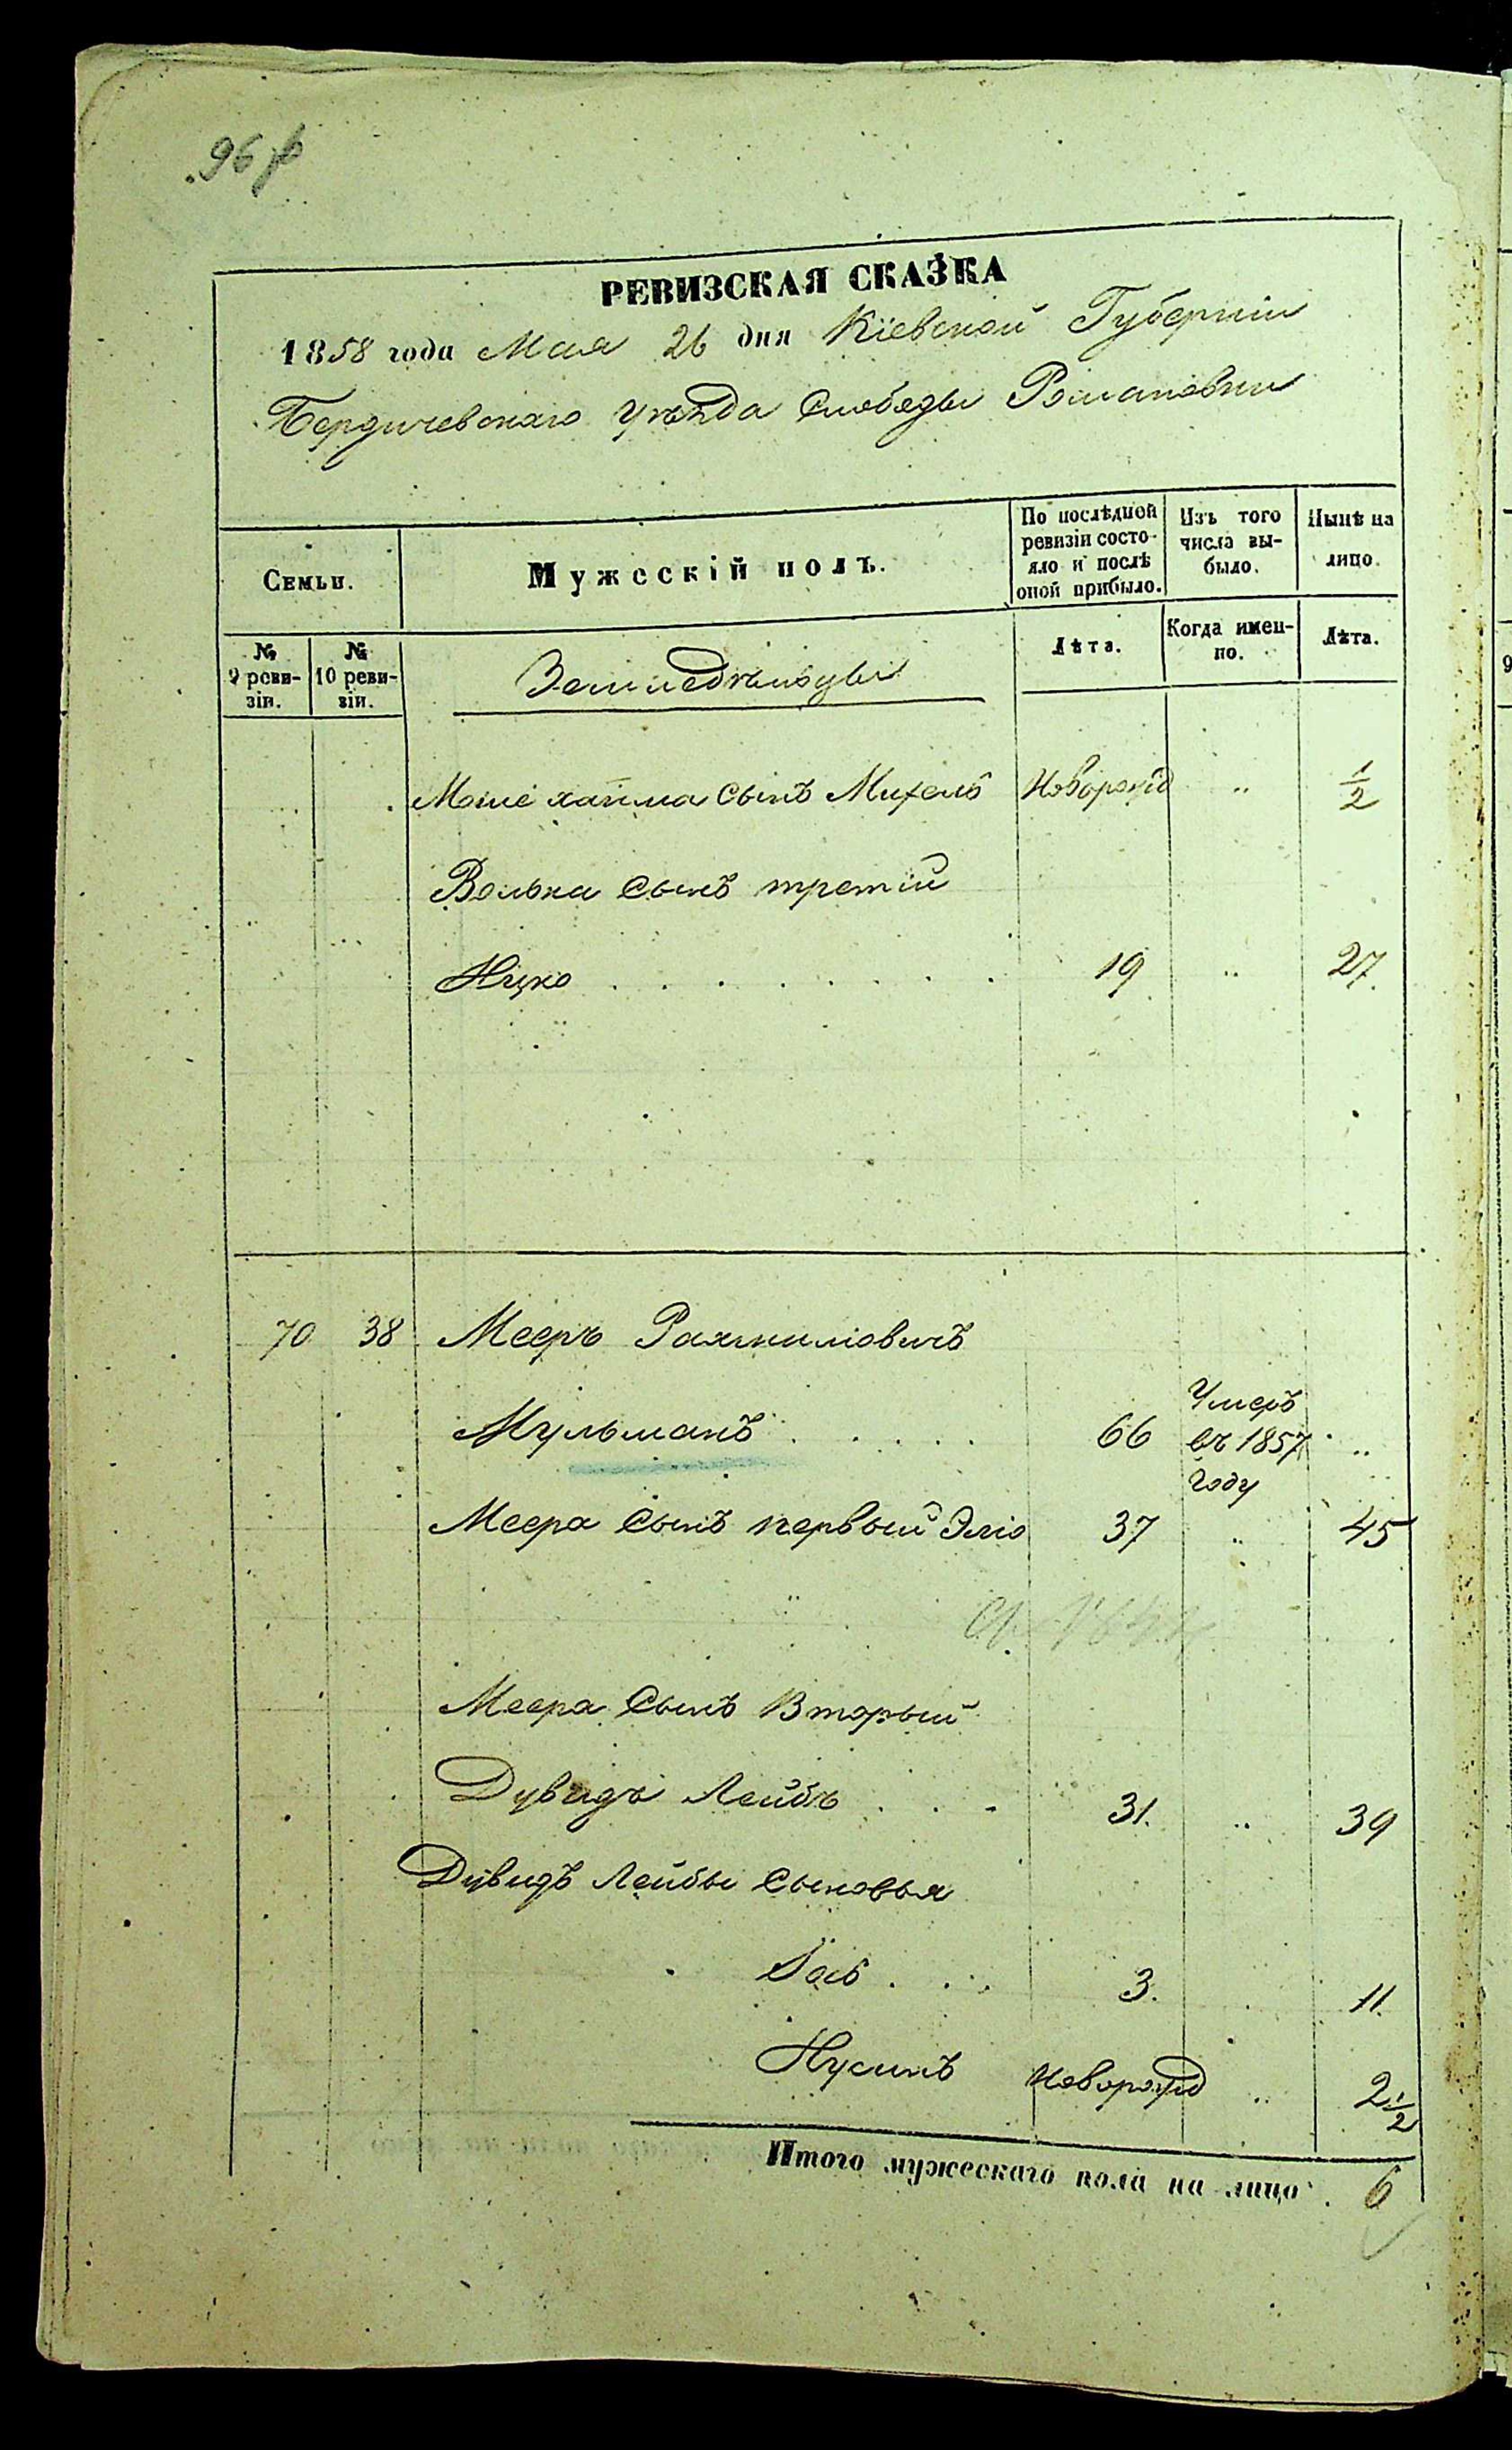 РЕВИЗСКАЯ СКАЗКА
1858 года Мая 26 дня Кіевской Губерніи
Бердичевскаго Уѣзда Слободы Романовки
Семьи. Мужескій полъ. По послѣдней ревизіи состояло и послѣ оной прибыло. Изъ того числа выбыло. Нынѣ на лицо.
№ 9 ревизіи. № 10 ревизіи. Земледѣльцы Лѣта. Когда именно. Лѣта.
Моше хаима сынъ Михель Новорожд „ 1/2
Волька сынъ третій
Ицко . . . . . . . . 19 „ 27.
70 38 Мееръ Рахмиліовичъ
Мульманъ . . . . . 66 Умеръ въ 1857 году „
Меера сынъ первый Эліо 37 „ 45
Меера сынъ Вторый
Дувидъ Лейбъ . . . 31. „ 39
Дувидъ Лейбы сыновья
3. 11.
Нусинъ Новорожд „ 2 1/2
Итого мужескаго пола на лицо . 6